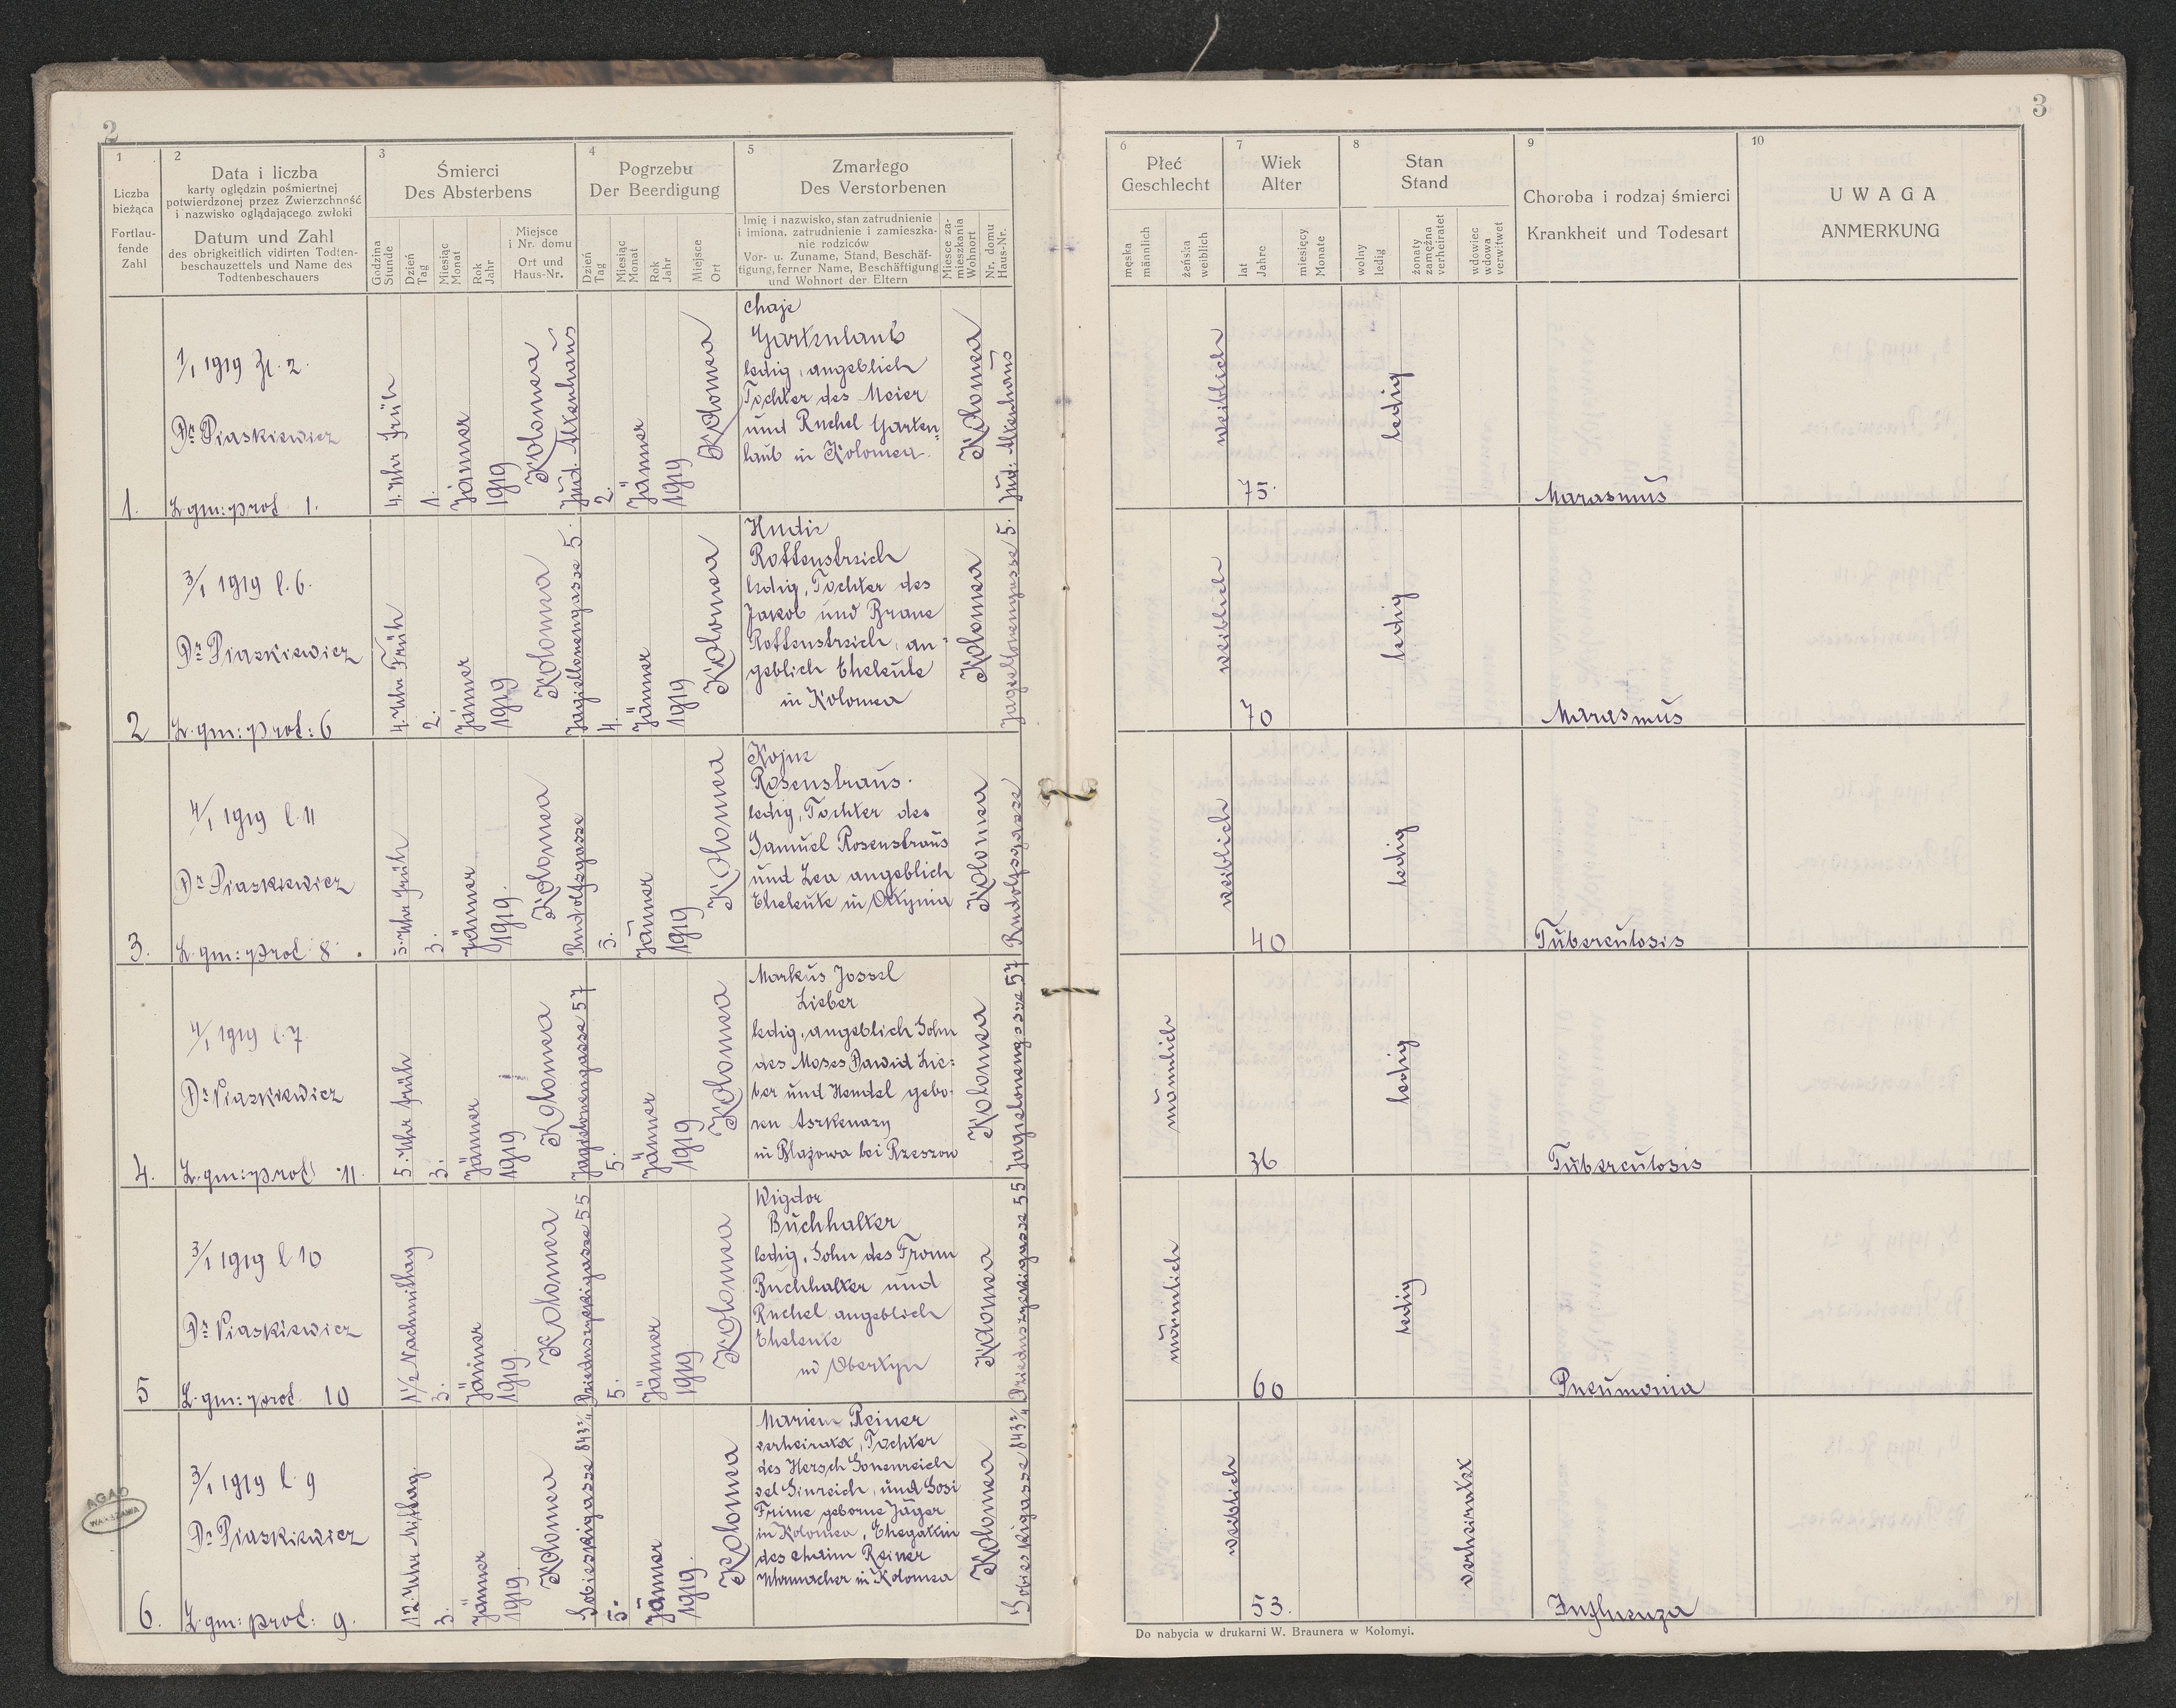 2
3
1
Liczba
bieżąca
Fortlau-
fende
Zahl
2
Data i liczba
karty oględzin pośmiertnej
potwierdzonej przez Zwierzchność
i nazwisko oglądającego zwłoki
Datum und Zahl
des obrigkeitlich vidirten Todten-
beschauzettels und Name des
Todtenbeschauers
3
Śmierci
Des Absterbens
Godzina
Stunde
Dzień
Tag
Miesiąc
Monat
Rok
Jahr
Miejsce
i Nr. domu
Ort und
Haus-Nr.
4
Pogrzebu
Der Beerdigung
Dzień
Tag
Miesiąc
Monat
Rok
Jahr
Miejsce
Ort
5
Zmarłego
Des Verstorbenen
Imię i nazwisko, stan zatrudnienie
i imiona, zatrudnienie i zamieszka-
nie rodziców
Vor- u. Zuname, Stand, Beschäf-
tigung, ferner Name, Beschäftigung
und Wohnort der Eltern
Miesce za-
mieszkania
Wohnort
Nr. domu
Haus-Nr.
6
Płeć
Geschlecht
męska
männlich
żeńska
weiblich
7
Wiek
Alter
lat
Jahre
miesięcy
Monate
8
Stan
Stand
wolny
ledig
żonaty
zamężna
verheiratet
wdowiec
wdowa
verwitwet
9
Choroba i rodzaj śmierci
Krankheit und Todesart
10
UWAGA
ANMERKUNG
1.
1/1 1919 Zl. 2.
Dr Piaskiewicz
L. gm: prot 1.
4. Uhr Früh
1.
Jänner
1919
Kolomea
Jüd. Alxenhaus
2.
Jänner
1919
Kolomea
Chaje
Gartenlaub
ledig, angeblich
Tochter des Meier
und Ruchel Garten=
laub in Kolomea.
Kolomea
Jüd. Alxenhaus
weiblich
75.
ledig
Marasmus
2
3/1 1919 l. 6.
Dr Piaskiewicz
L. gm: prot: 6
4. Uhr Früh
2.
Jänner
1919
Kolomea
Jagiellonengasse 5.
4.
Jänner
1919
Kolomea
Hudie
Rottenstreich
ledig, Tochter des
Jakob und Brane
Rottenstreich, an-
geblich Eheleute
in Kolomea
Kolomea
Jagiellonengasse 5.
weiblich
70
ledig
Marasmus
3.
4/1 1919 l. 11
Dr Piaskiewicz
L. gm: prot 8.
3. Uhr Früh
3.
Jänner
1919.
Kolomea
Rudolfsgasse
3.
Jänner
1919
Kolomea
Kojne
Rosenstraus.
ledig, Tochter des
Samuel Rosenstraus
und Lea angeblich
Eheleute in Ottynia
Kolomea
Rudolfsgasse
weiblich
40
ledig
Tuberculosis
4.
4/1 1919 l. 7
Dr Piaskiewicz
L. gm: prot 11.
5. Uhr früh
3.
Jänner
1919
Kolomea
Jagielonengasse 57
5.
Jänner
1919
Kolomea
Markus Jossel
Lieber
ledig, angeblich Sohn
des Moses Dawid Lie:
ber und Hendel gebo-
ren Aszkenazy
in Błażowa bei Rzeszow
Kolomea
Jagielonengasse 57
männlich
36
ledig
Tuberculosis
5
3/1 1919 l 10
Dr Piaskiewicz
L. gm: prot. 10
1 1/2 Nachmittag
3.
Jänner
1919.
Kolomea
Dzieduszyckigasse 55
5.
Jänner
1919.
Kolomea
Wigdor
Buchhalter
ledig, Sohn des Froim
Buchhalter und
Ruchel angeblich
Eheleute
in Obertyn
Kolomea
Dzieduszyckigasse 55
männlich
60
ledig
Pneumonia
6.
3/1 1919 l. 9
Dr Piaskiewicz
L. gm: prot: 9.
12. Uhr Mittag.
3.
Jänner
1919.
Kolomea
Sobieskigasse 843 2/4
5.
Jänner
1919.
Kolomea
Mariem Reiner
verheiratet, Tochter
des Hersch Sonenreich
vel Sinreich, und Sosi
Frime geborne Jäger
in Kolomea, Ehegattin
des Chaim Reiner
Uhrmacher in Kolomea
Kolomea
Sobieskigasse 843 2/4
weiblich
53.
verheiratet
Influenza
AGAD
WARSZAWA
Do nabycia w drukarni W. Braunera w Kołomyi.